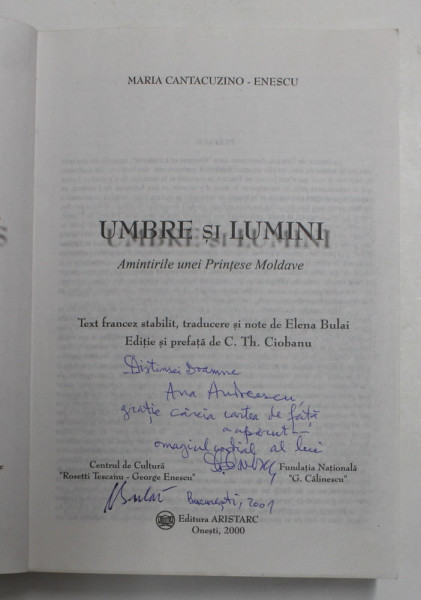 MARIA CANTACUZINO - ENESCU
UMBRE ȘI LUMINI
Amintirile unei Prințese Moldave
Text francez stabilit, traducere și note de Elena Bulai
Ediție și prefață de C. Th. Ciobanu
Distinsei Doamne
Ana Andreescu,
grație căreia cartea de față
a apărut —
omagiul cordial al lui
Centrul de Cultură
"Rosetti Tescanu - George Enescu"
Fundația Națională
"G. Călinescu"
EBulai București, 2001
Editura ARISTARC
Onești, 2000